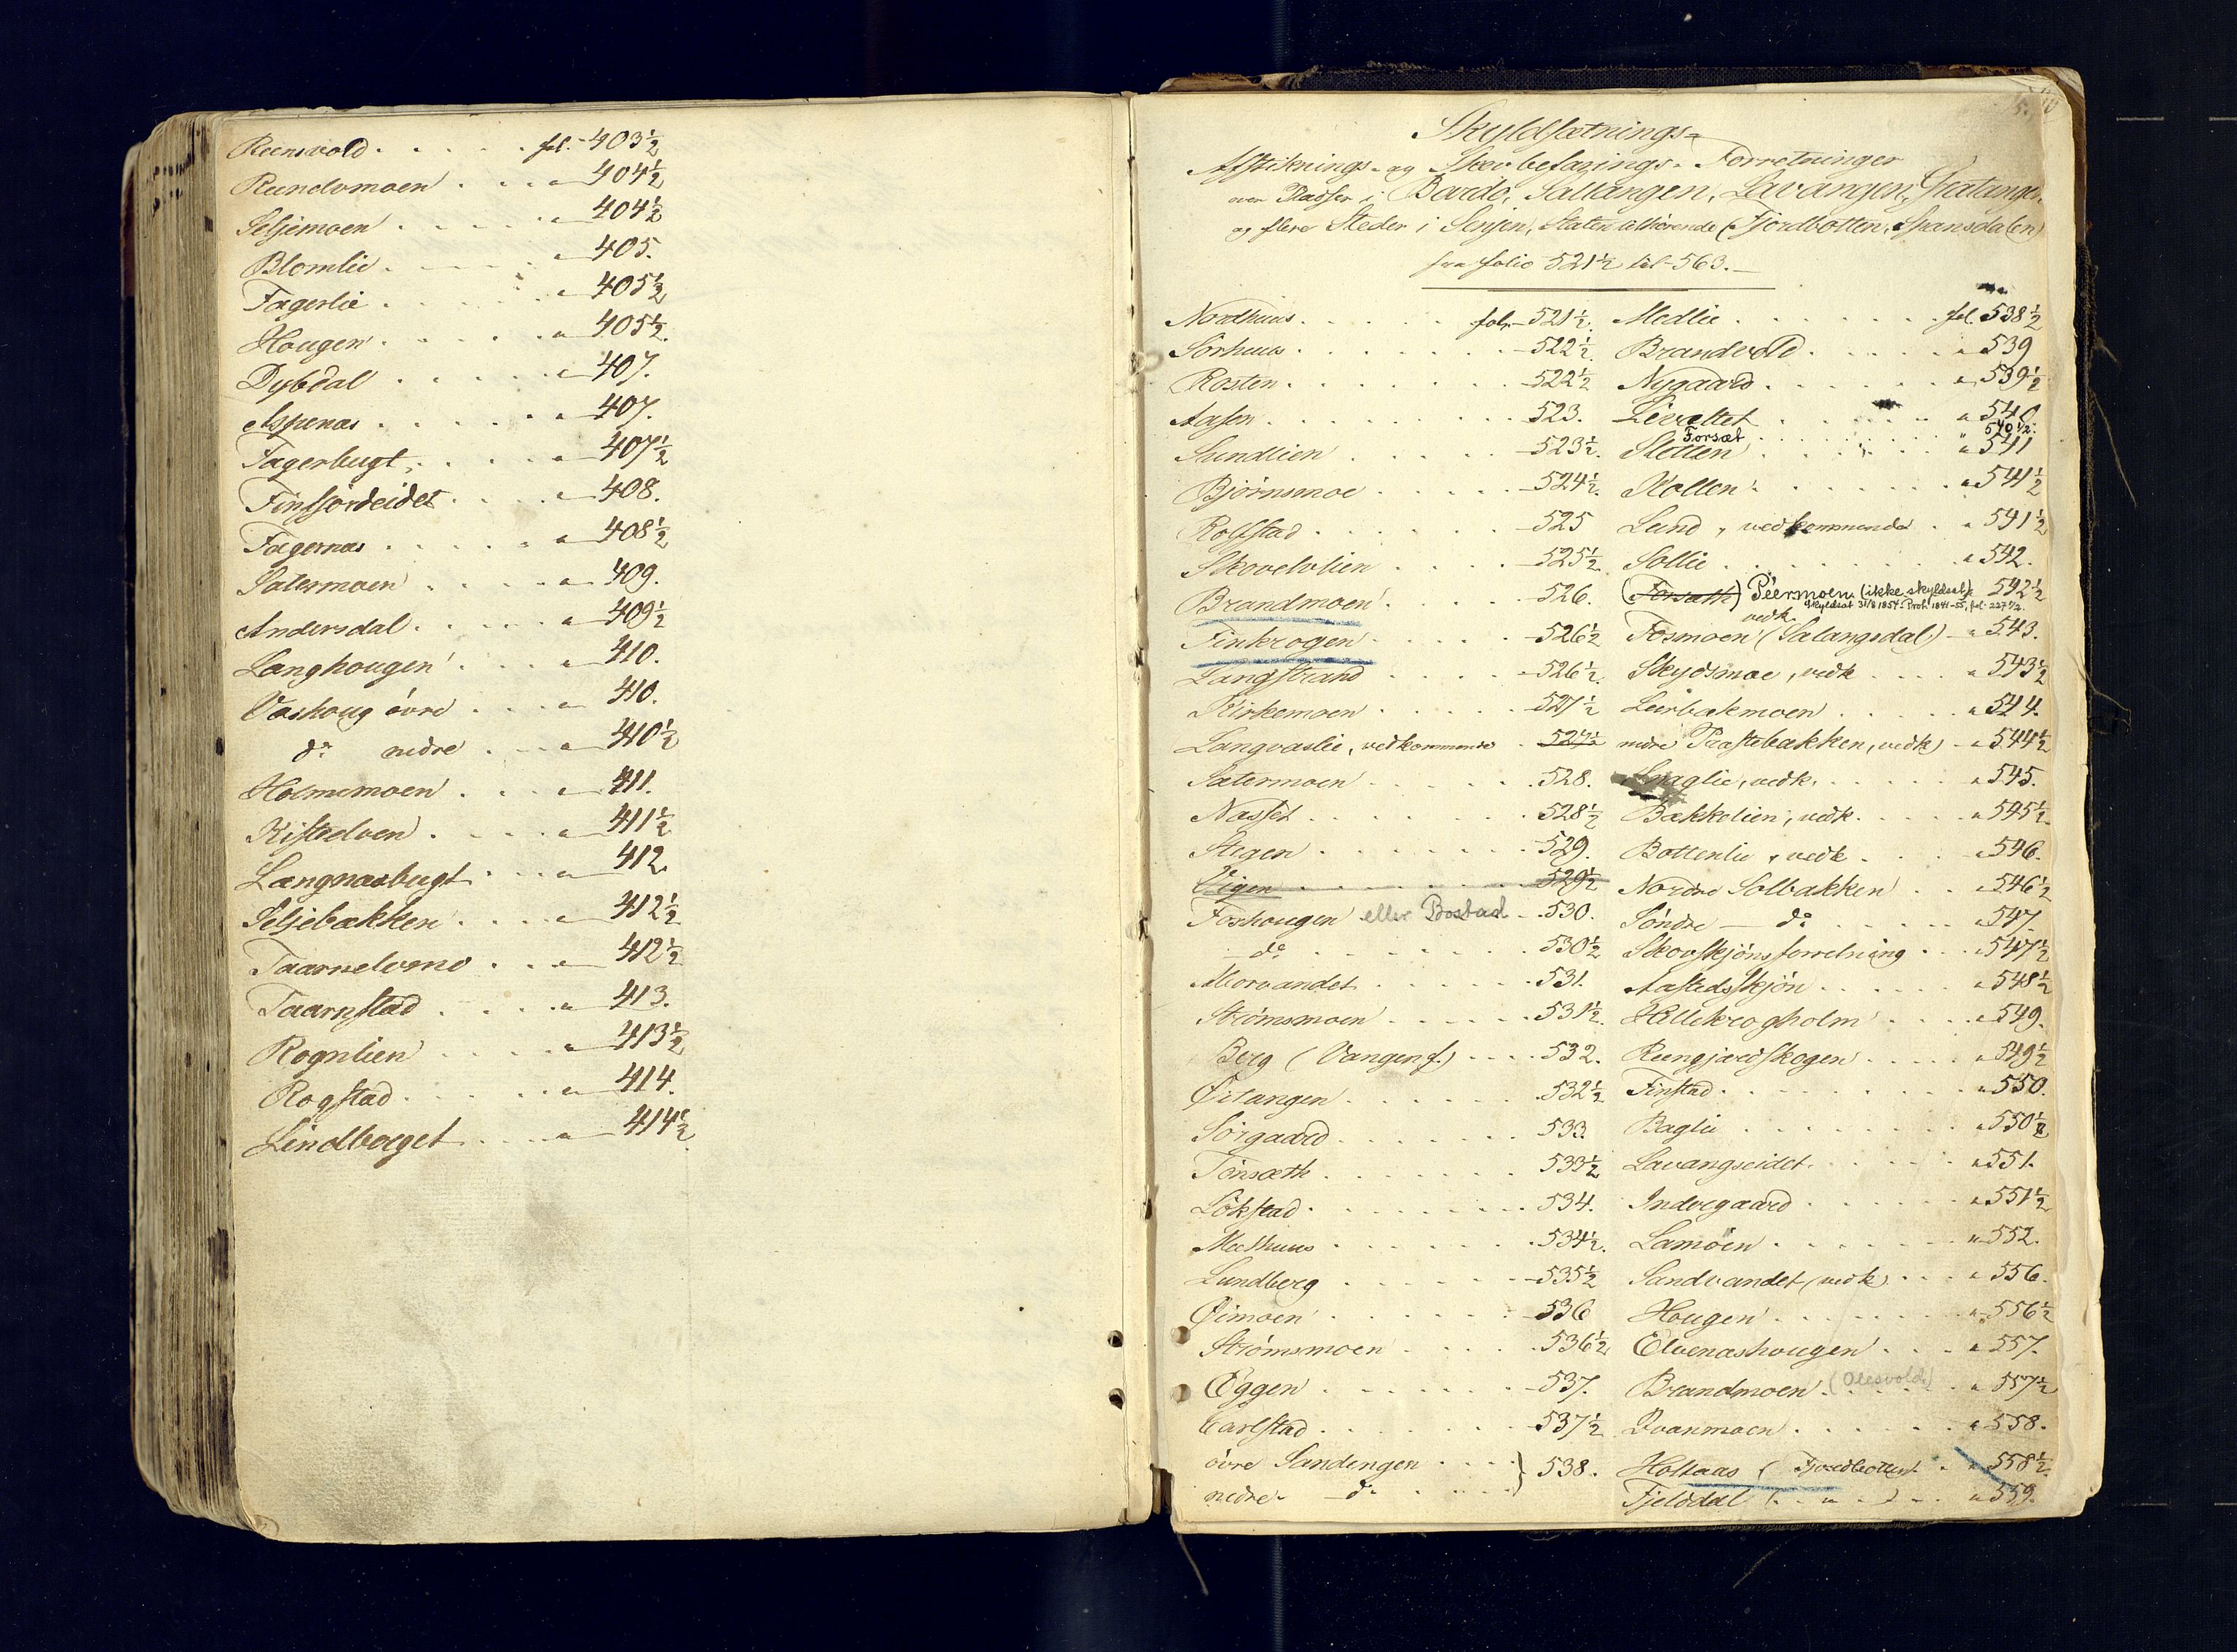 Reensvold . . . . . fol. - 403½
Rundvmoen . . . " 404½
Seljemoen . . . . " 404½
Blomlie . . . . " 405.
Fagerlie . . . . " 405½
Hougen . . . . " 405½.
Dybdal . . . . " 407.
Aspenæs . . . . " 407.
Fagerbugt . . . . " 407½
Finfjordeidet . . . " 408.
Fagernæs . . . . " 408½
Sætermoen . . . . " 409.
Andersdal . . . . " 409½
Langhougen . . . " 410.
Vashoug övre . . . " 410.
do nedre . . . " 410½
Holmemoen . . . " 411.
Kistelven . . . . " 411½
Langnæsbugt . . . " 412.
Seljebakken . . . " 412½
Taarnelvmo . . . " 412½
Taarnstad . . . . " 413.
Rognlien . . . . " 413½
Rogstad . . . . " 414.
Lindberget . . . . " 414½
Skyldsætnings-
Afstiknings- og Skovbefarings-Forretninger
over Pladser i Bardo, Saltangen, Lavangen, Gratangen
og flere Steder i Senjen, Staten tilhörende (Fjordbotten, Spansdalen)
fra folio 521½ til 563.
Nordhuus . . . . . fol. 521½.
Sörhuus . . . . . 522½.
Rosten . . . . . 522½
Aasen . . . . . 523.
Sundlien . . . . . 523½.
Bjørnsmoe . . . . . 524½.
Rolfstad . . . . . 525
Skovelvlien . . . . . 525½
Brandmoen . . . . . 526.
Finkrogen . . . . . 526½
Langstrand . . . . . 526½.
Kirkemoen . . . . . 527½
Langvaslie, vedkommende . 527½
Sætermoen . . . . . 528.
Næsset . . . . . 528½
Stegen . . . . . 529.
Vigen . . . . . 529½
Foshougen eller Bostad . 530.
do . . . . . 530½
Morvandet . . . . . 531.
Strömsmoen . . . . . 531½.
Berg (Vangen f.) . . . . 532.
Örtangen . . . . . 532½
Sörgaard . . . . . 533.
Tönsæth . . . . . 533½
Lökstad . . . . . 534.
Melhuus . . . . . 534½.
Lundberg . . . . . 535½
Öimoen . . . . . 536
Strömsmoen . . . . . 536½
Eggen . . . . . 537.
Carlstad . . . . . 537½
övre Sandengen . . . } 538.
nedre - do . . . .
Medlie . . . . . fol. 538½
Brandvold . . . . . " 539
Nygaard . . . . . " 539½
Livæltet . . . . . " 540
Forsæt . . . . . " 540½.
Sletten . . . . . " 541
Kollen . . . . . " 541½
Lund, vedkommende . " 541½
Sollie . . . . . " 542.
(Forsæth) Péermoen (ikke skyldsat) 542½
Skyldsat 31/8 1854 - Prot. 1841-55, fol. 227½.
vedk.
Fosmoen (Salangsdal) - " 543.
Skydsmoe, vedk . . . . " 543½
Leirbækmoen . . . . . " 544.
nedre Præstebakken, vedk) . " 544½
Snaglie, vedk. . . . . " 545.
Bækkelien, vedk. . . . . " 545½.
Bottenlie, vedk . . . " 546.
Nordre Solbakken . . " 546½
Söndre — do . . . . . " 547.
Skovskjönsforretning . . . " 547½
Aastedsskjön . . . . . " 548½
Hellekrogholm . . . . " 549.
Reengjærdskogen . . . . . " 549½
Finstad . . . . . " 550.
Baglie . . . . . " 550½
Lavangseidet . . . . . " 551.
Indregaard . . . . . " 551½
Lamöen . . . . . " 552.
Sandvandet (vedk) . . . " 556.
Hougen . . . . . " 556½
Elvenæshougen . . . " 557.
Brandmoen (Olesvold) . . " 557½
Svanmoen . . . . . " 558.
Holtaas (Fjordbotten) . " 558½.
Fjelddal ( . . " . . ) . . " 559.